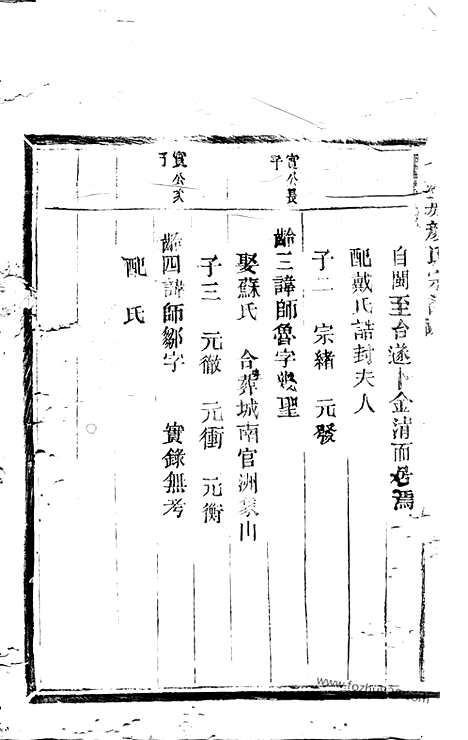 自閩至台遂卜金清而居焉
配戴氏誥封夫人
子二 宗緒 元發
實公長子
齡三諱師魯字 聖
娶蘇氏 合葬城南官洲 山
子三 元徹 元衝 元衡
實公次子
齡四諱師鄒字 實錄無考
配 氏